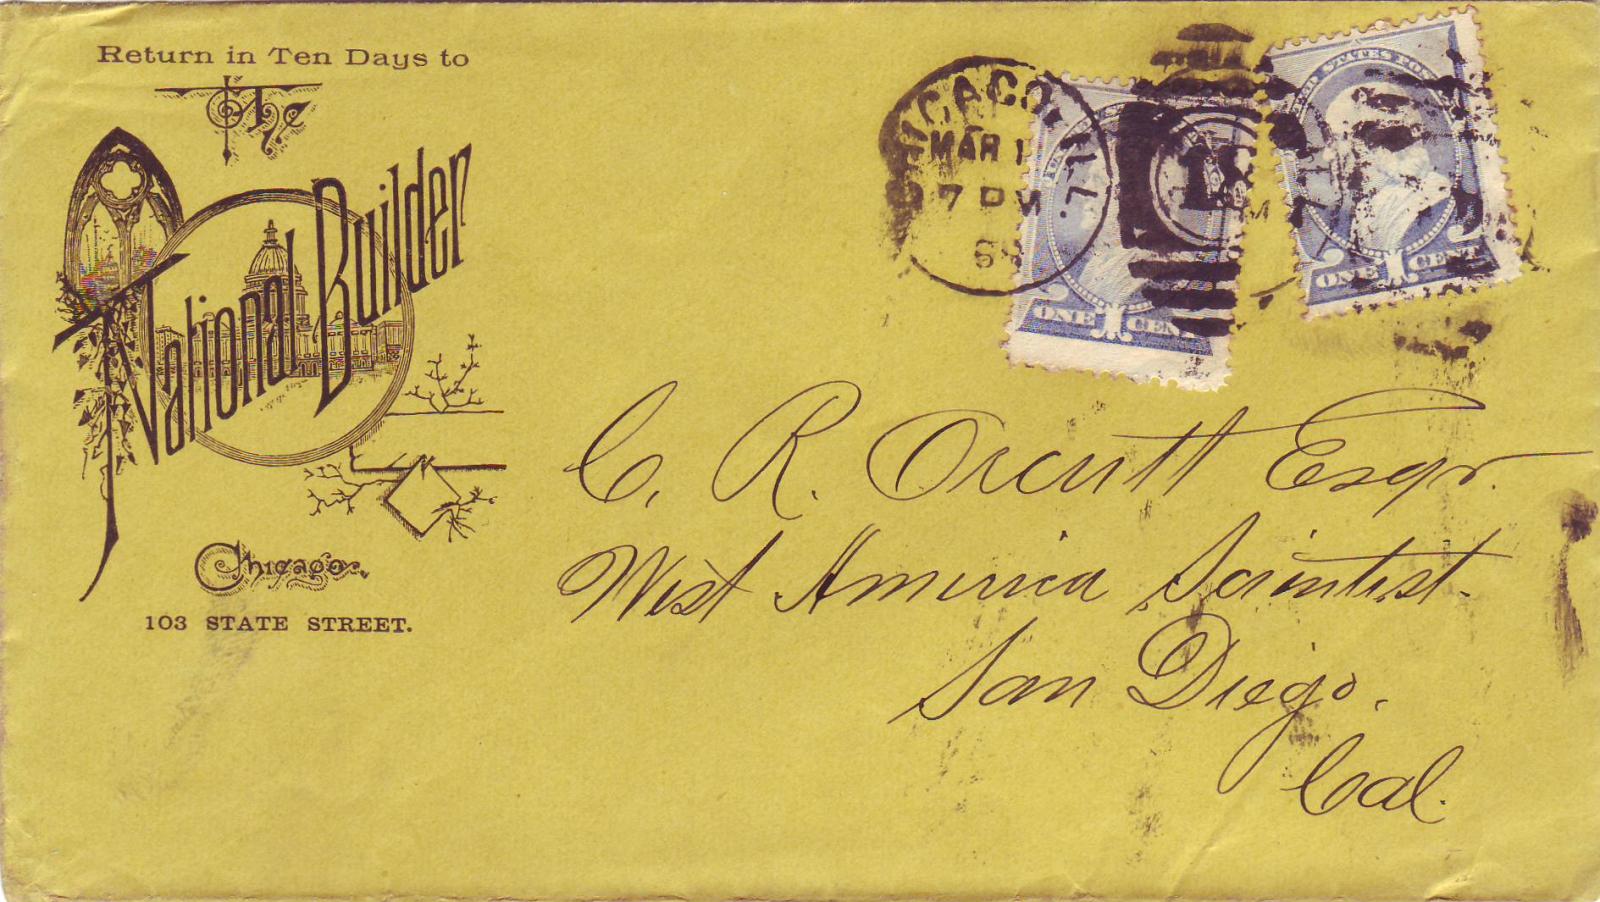 Return in Ten Days to
The
National Builder
Chicago.
103 STATE STREET.
CHICAGO, ILL.
MAR 1
7 PM
ONE CENT
ONE CENT
C. R. Orcutt Esqr.
West America Scientist.
San Diego.
Cal.